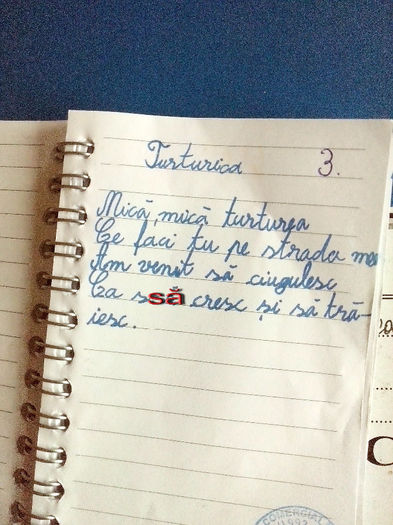 Turturica 3.
Mică, mică turturea
Ce faci tu pe strada mea
Am venit să ciugulesc
Ca să cresc și să tră-
iesc.
COMERCIAL